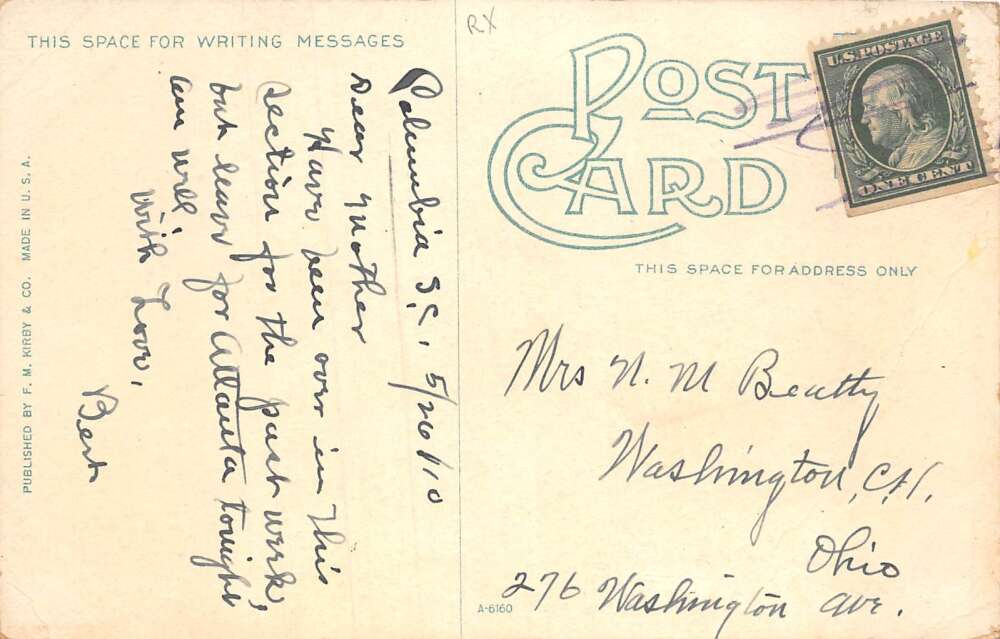 THIS SPACE FOR WRITING MESSAGES
Columbia S.C. 5/26/10
Dear Mother
Have been over in this
section for the past week,
but leave for Atlanta tonight
am well.
With Love,
Bert
PUBLISHED BY F. M. KIRBY & CO. MADE IN U. S. A.
RX
POST
CARD
U.S. POSTAGE
ONE CENT
THIS SPACE FOR ADDRESS ONLY
Mrs N. M Beatty
Washington, C.H.
Ohio
276 Washington ave.
A-6160